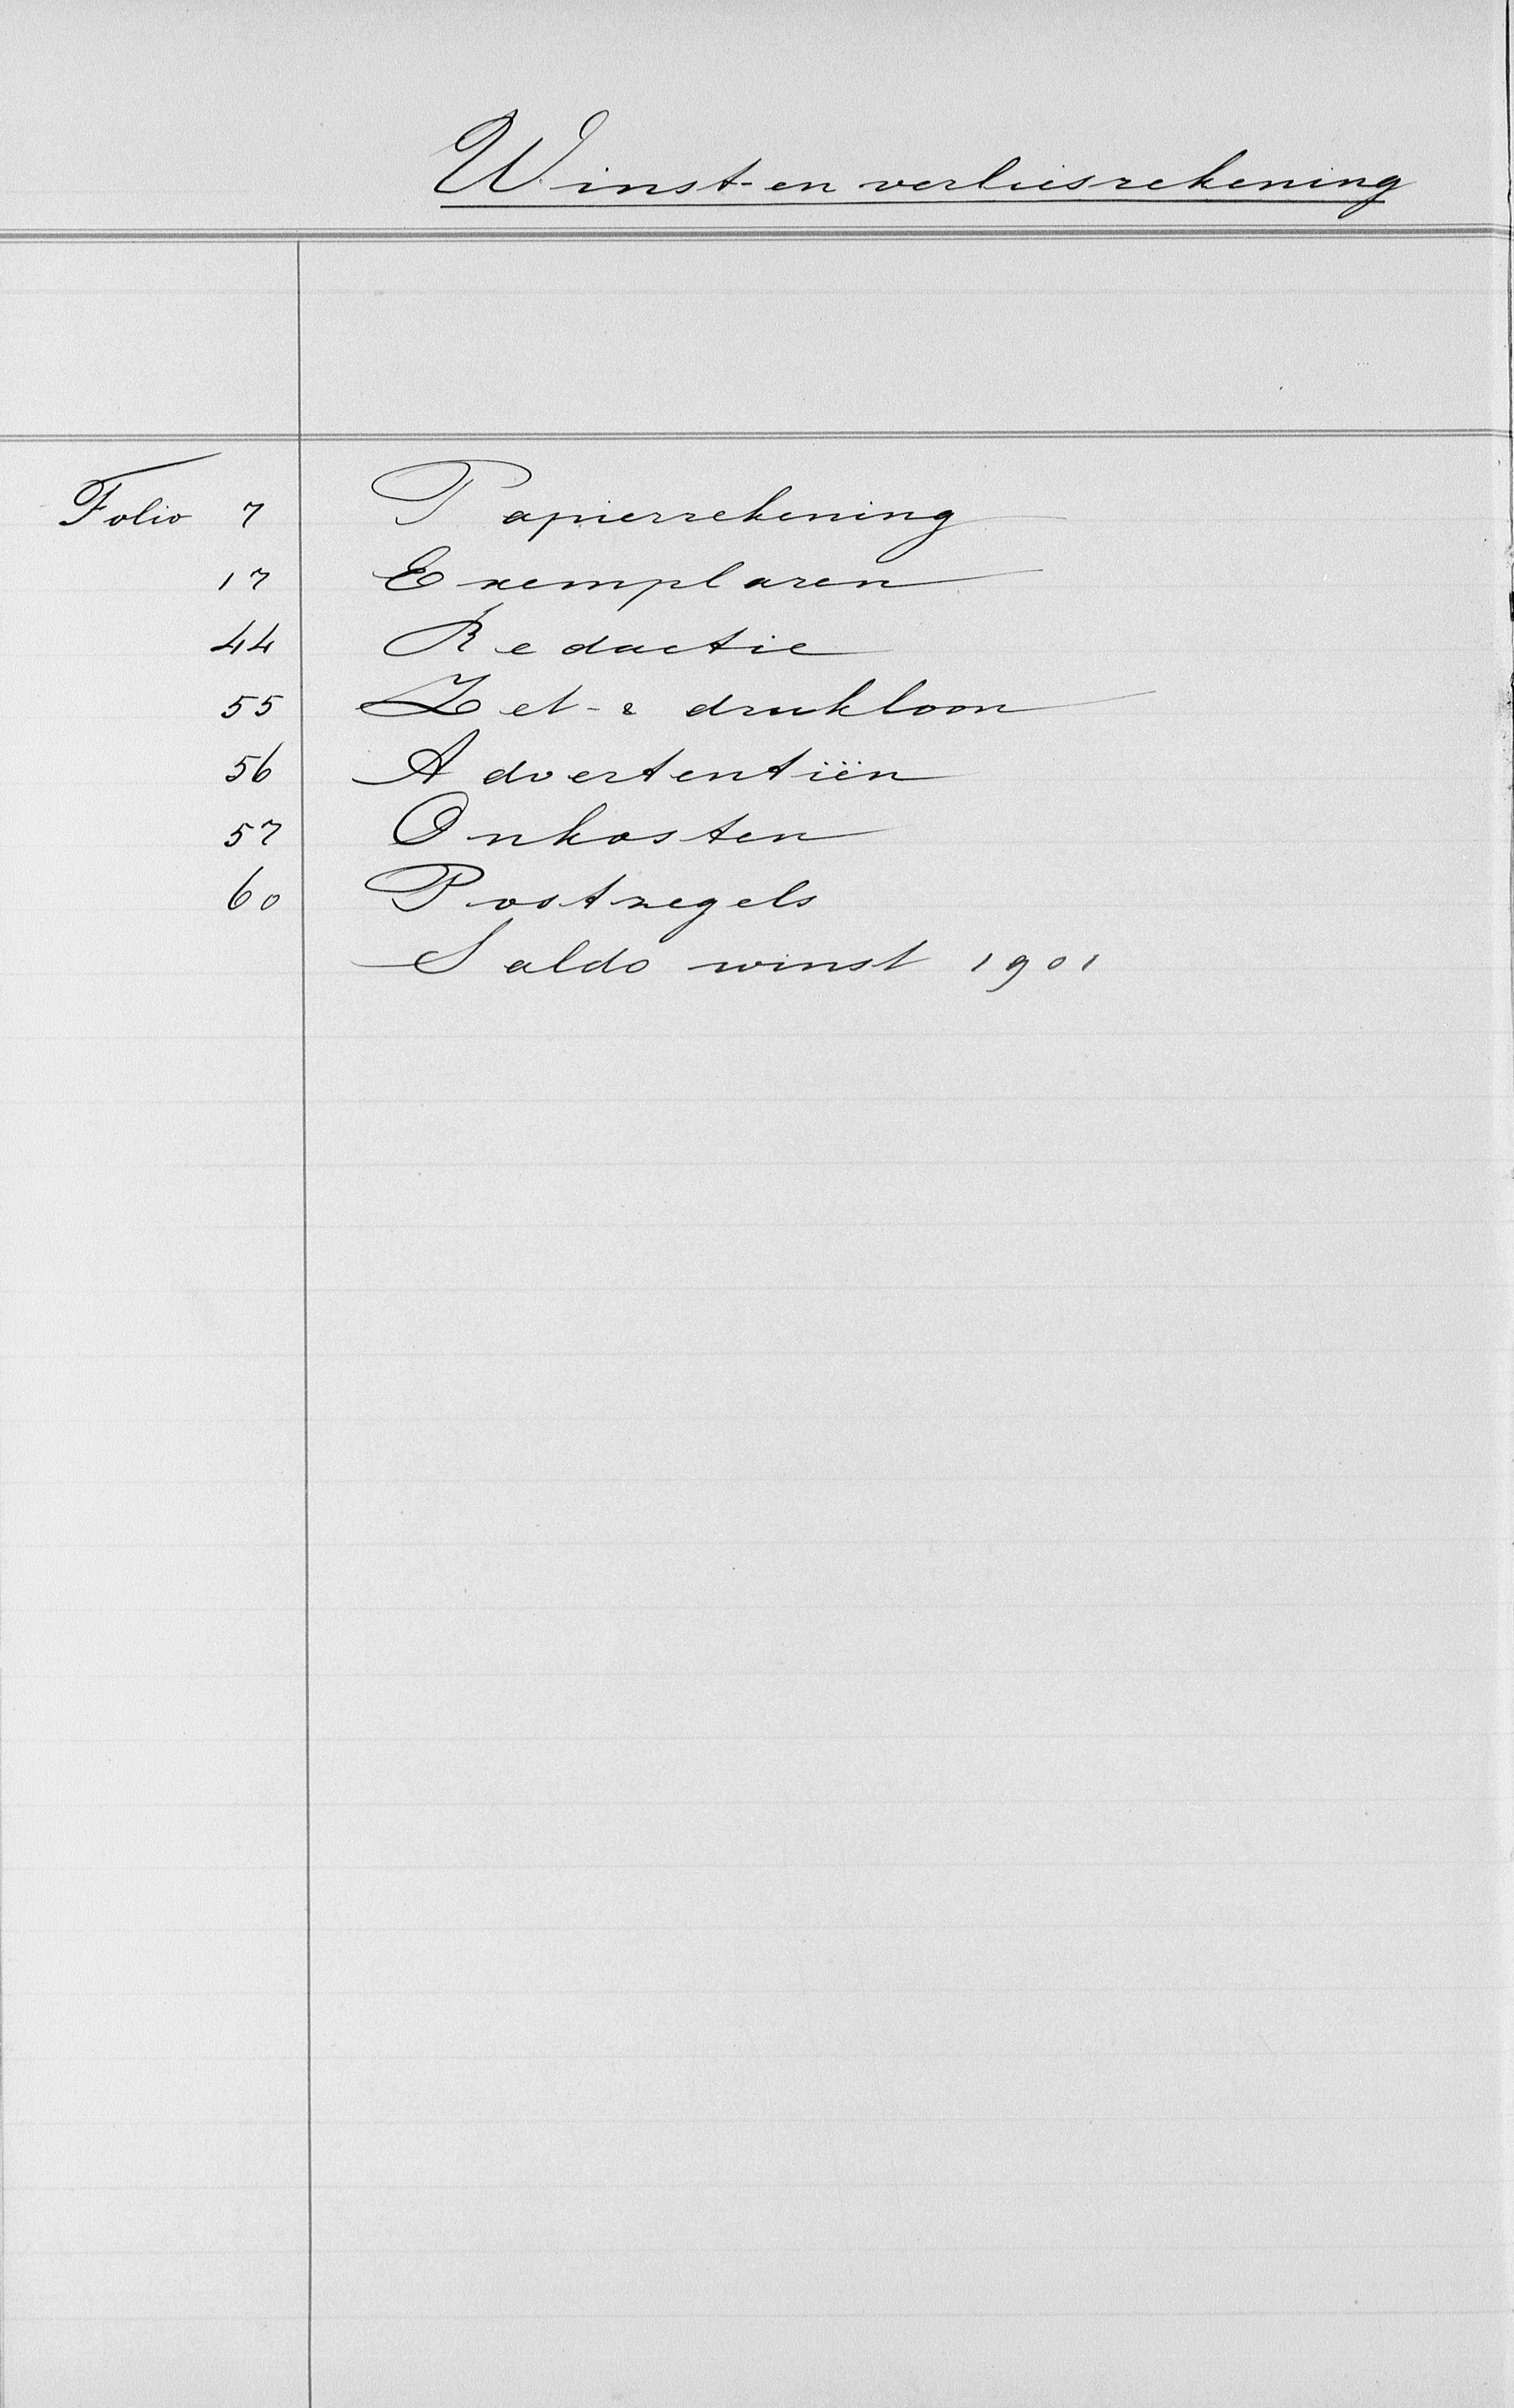 Winst-en verliesrekening
Folio 7 Papierrekening
17 Exemplaren
44 Redactie
55 Zet- & drukloon
56 Advertentiën
57 Onkosten
60 Postzegels
Saldo winst 1901